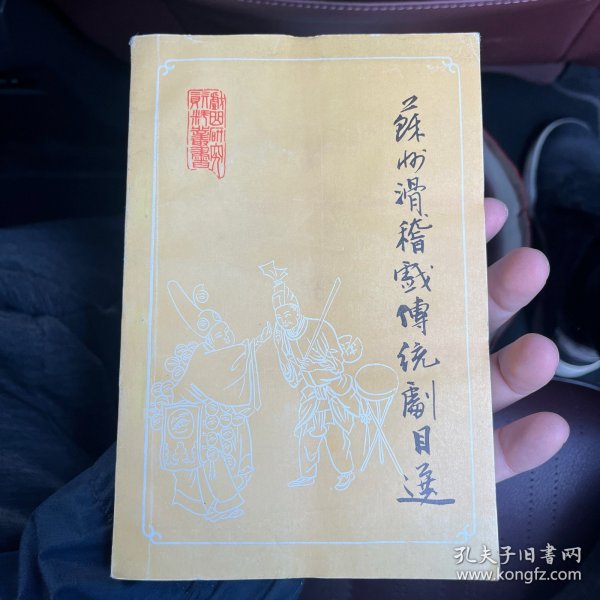 蘇州滑稽戲傳統劇目選
戲曲研究
資料叢書
孔夫子旧書网
www.kongfz.com